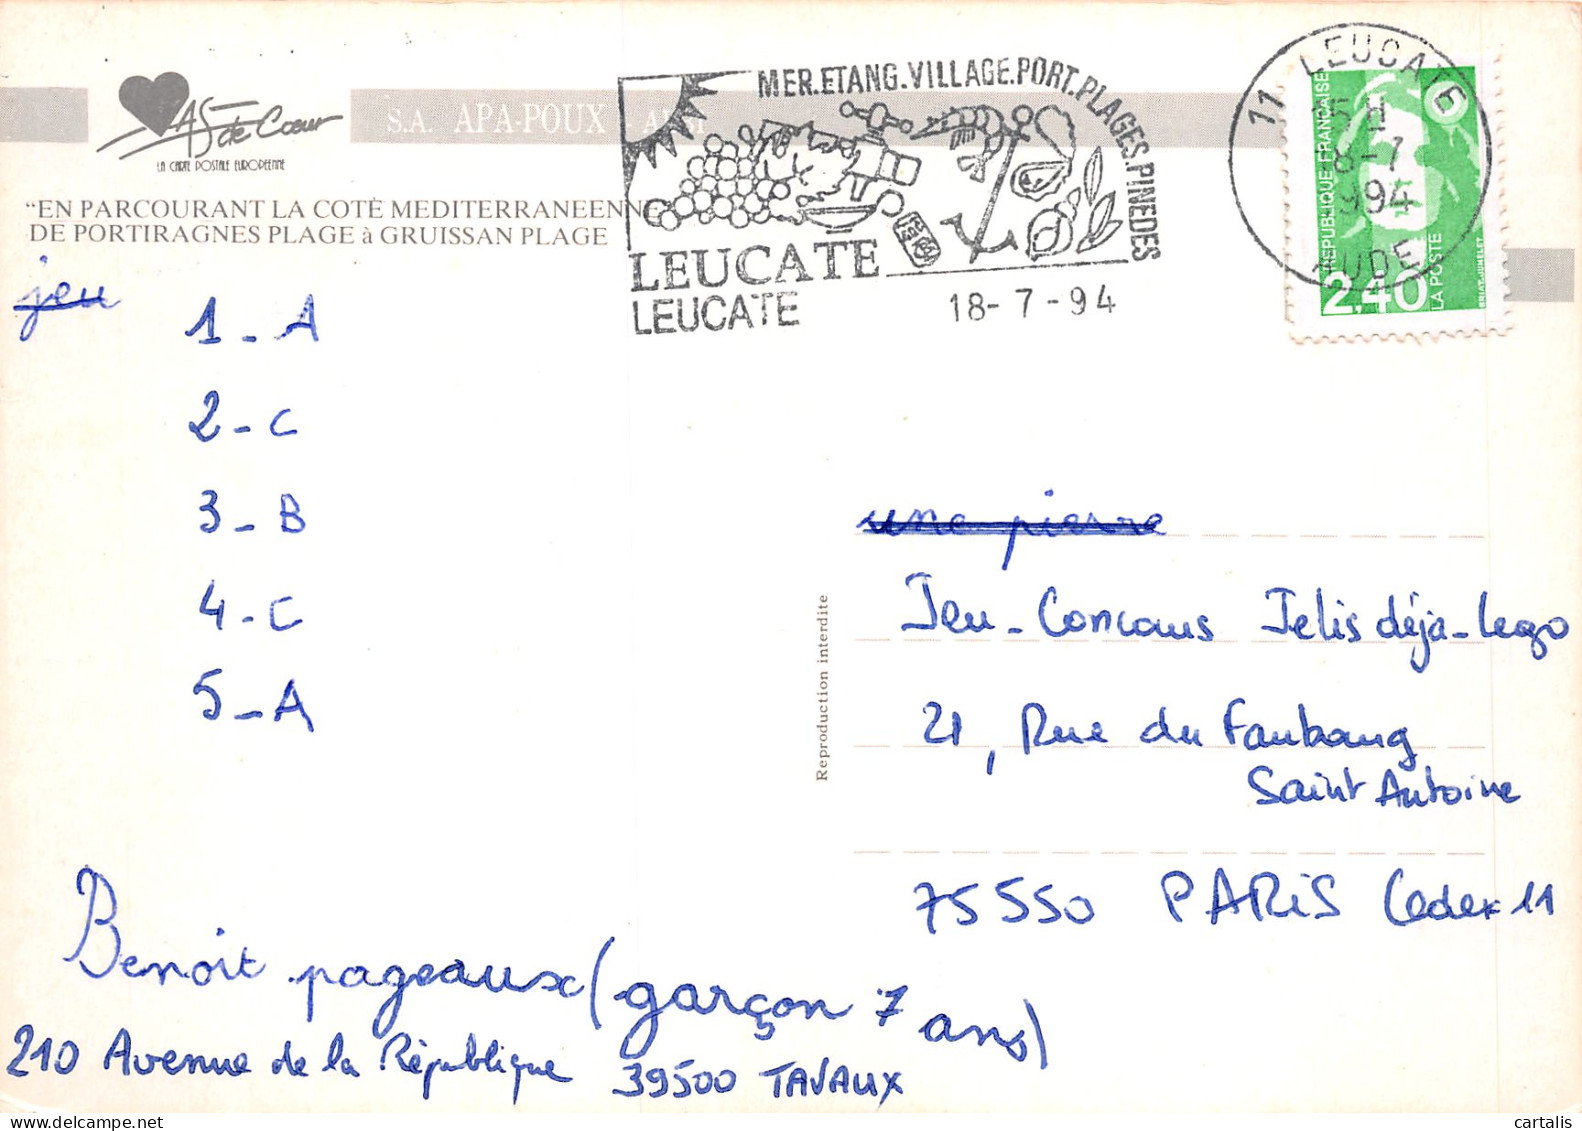 MER.ETANG.VILLAGE.PORT.PLAGES.PINEDES
11 LEUCATE
15 H
18-7
1994
AUDE
REPUBLIQUE FRANÇAISE
2,40
LA POSTE
BRIAT-JUMELET
As de Cœur
LA CARTE POSTALE EUROPEENNE
S.A. APA-POUX - ALBI
"EN PARCOURANT LA COTE MEDITERRANEENNE
DE PORTIRAGNES PLAGE à GRUISSAN PLAGE
LEUCATE
LEUCATE
18-7-94
jeu
1 - A
2 - C
3 - B
4 - C
5 - A
Reproduction interdite
une pierre
Jeu - Concours Jelis déja - Lego
21, Rue du Faubourg
Saint Antoine
75 550 PARIS Cedex 11
Benoit pageaux (garçon 7 ans)
210 Avenue de la République 39500 TAVAUX
cartalis